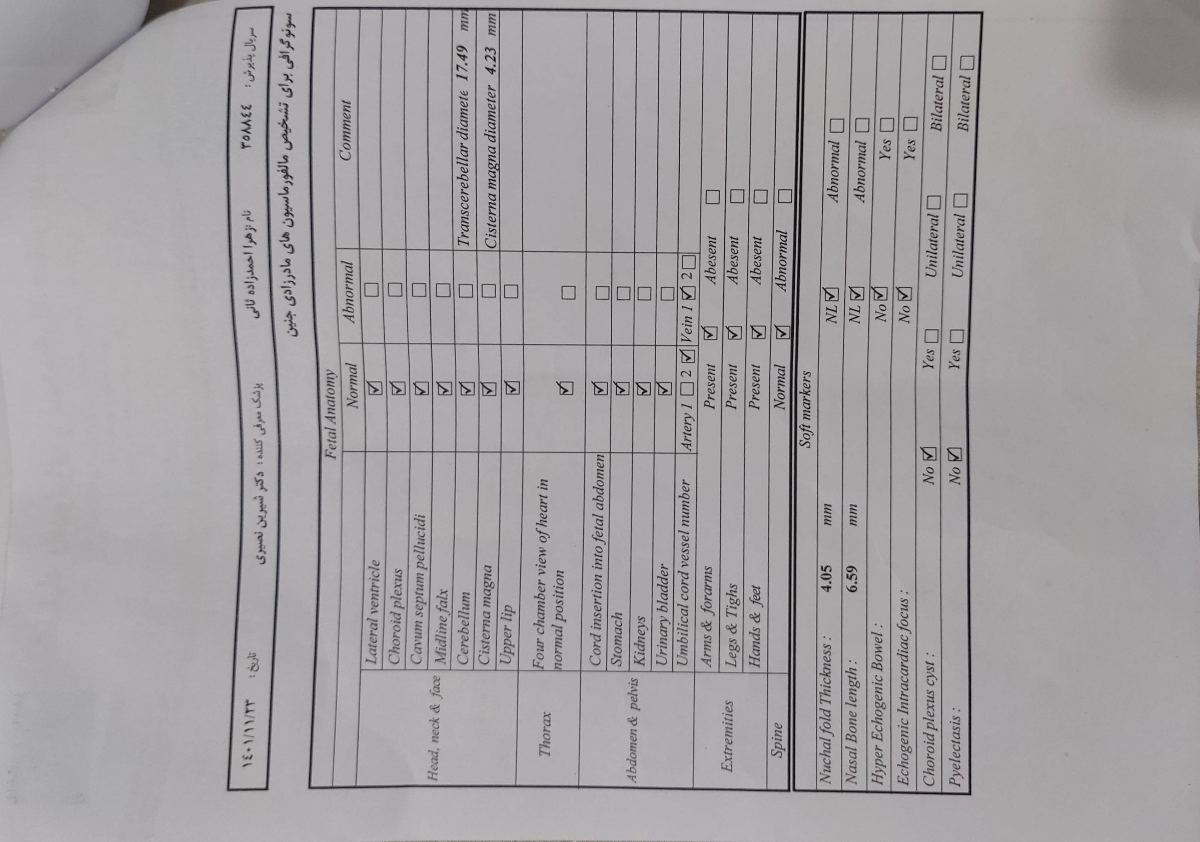 سریال پذیرش: ۳۵۸۸۴۴ نام: زهرا احمدزاده ثانی پزشک معرفی کننده: دکتر شیرین نصیری تاریخ: ۱۴۰۱/۱۱/۲۳
سونوگرافی برای تشخیص مالفورماسیون های مادرزادی جنین
Fetal Anatomy
Normal Abnormal Comment
Head, neck & face
Lateral ventricle ☑ ☐
Choroid plexus ☑ ☐
Cavum septum pellucidi ☑ ☐
Midline falx ☑ ☐
Cerebellum ☑ ☐ Transcerebellar diamete 17.49 mm
Cisterna magna ☑ ☐ Cisterna magna diameter 4.23 mm
Upper lip ☑ ☐
Thorax
Four chamber view of heart in
normal position ☑ ☐
Abdomen & pelvis
Cord insertion into fetal abdomen ☑ ☐
Stomach ☑ ☐
Kidneys ☑ ☐
Urinary bladder ☑ ☐
Umbilical cord vessel number Artery 1 ☐ 2 ☑ Vein 1 ☑ 2 ☐
Extremities
Arms & forarms Present ☑ Abesent ☐
Legs & Tighs Present ☑ Abesent ☐
Hands & feet Present ☑ Abesent ☐
Spine Normal ☑ Abnormal ☐
Soft markers
Nuchal fold Thickness : 4.05 mm NL ☑ Abnormal ☐
Nasal Bone length : 6.59 mm NL ☑ Abnormal ☐
Hyper Echogenic Bowel : No ☑ Yes ☐
Echogenic Intracardiac focus : No ☑ Yes ☐
Choroid plexus cyst : No ☑ Yes ☐ Unilateral ☐ Bilateral ☐
Pyelectasis : No ☑ Yes ☐ Unilateral ☐ Bilateral ☐